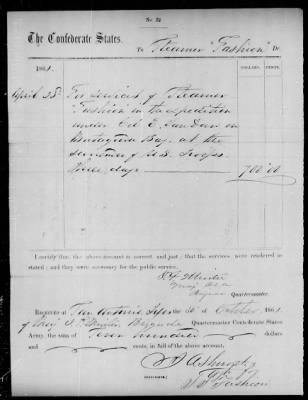 No 22
The Confederate States.
To Steamer "Fashion" Dr.
1861. DOLLARS. CENTS.
April 25 For services of Steamer
Fashion in the expedition
under Col E. Van Dorn on
Matagorda Bay, at the
surrender of U.S. Troops.
Three days 700 00
I certify that the above account is correct and just; that the services were rendered as
stated; and they were necessary for the public service.
Major
Quartermaster.
RECEIVED at San Antonio Texas the 30 of October 1861
of Maj Brigade Quartermaster Confederate States
Army, the sum of Seven hundred dollars
and cents, in full of the above account.
Fashion